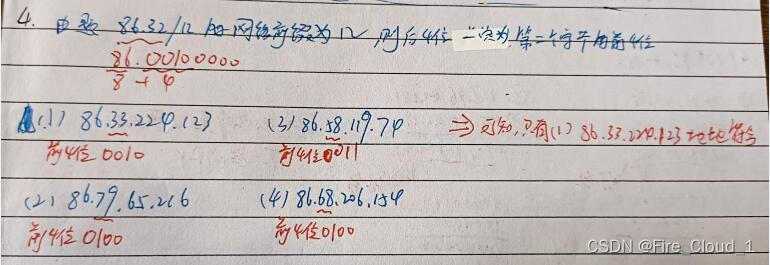 4. 由题 86.32/12 的网络前缀为12,则后4位 二次为 第二个字节的前4位
86.00100000
8 + 4
(1) 86.33.224.123 (3) 86.58.119.74 ⇒ 可知,只有(1) 86.33.224.123 地址符合
前4位 0010 前4位 0011
(2) 86.79.65.216 (4) 86.68.206.154
前4位 0100 前4位 0100
CSDN @Fire_Cloud_1